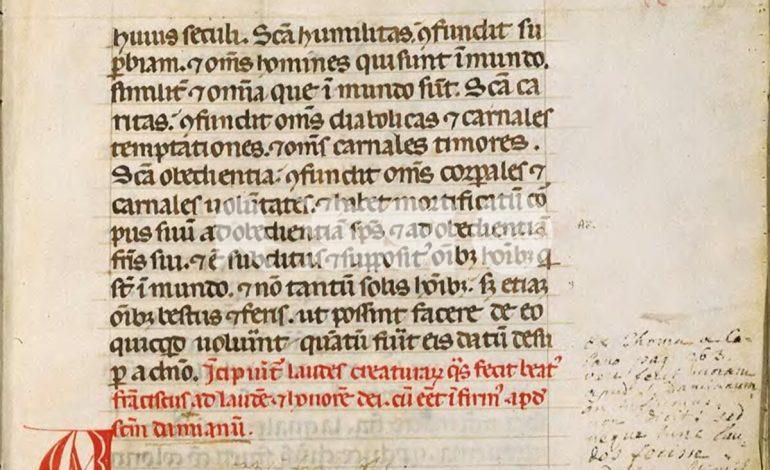 huius seculi. Scā humilitas ꝯfundit su
ꝑbiam. ⁊ om̄s homines qui sunt ī mundo.
similit̄ ⁊ om̄ia que ī mundo sūt. Scā ca
ritas. ꝯfundit om̄s diabolicas ⁊ carnales
temptationes. ⁊ om̄s carnales timores.
Scā obedientia. ꝯfundit om̄s corꝑales ⁊
carnales uolūtates. ⁊ habet mortificatū cor
pus suū ad obedientiā sp̄s ⁊ ad obedientiā
fr̄is sui. ⁊ ē subditus ⁊ supposit᾽ oīb; hoīb; q
st̄ ī mundo. ⁊ nō tantū solis hoīb;. s; etiam
oīb; bestiis ⁊ feris. ut possint facere de eo
quicqd uoluīnt quātū fuīt eis datū desu
ꝑ a dn̄o. Īcipiūt laudes creaturaꝝ q̄s fecit beat᾽
frāciscus ad laudē ⁊ honorē dei. cū eēt īfirm᾽ apd
scm̄ damianū.
ex Thoma a Ce-
lano pag. 263.
apud S. Damianum
non sed
neque hunc lau-